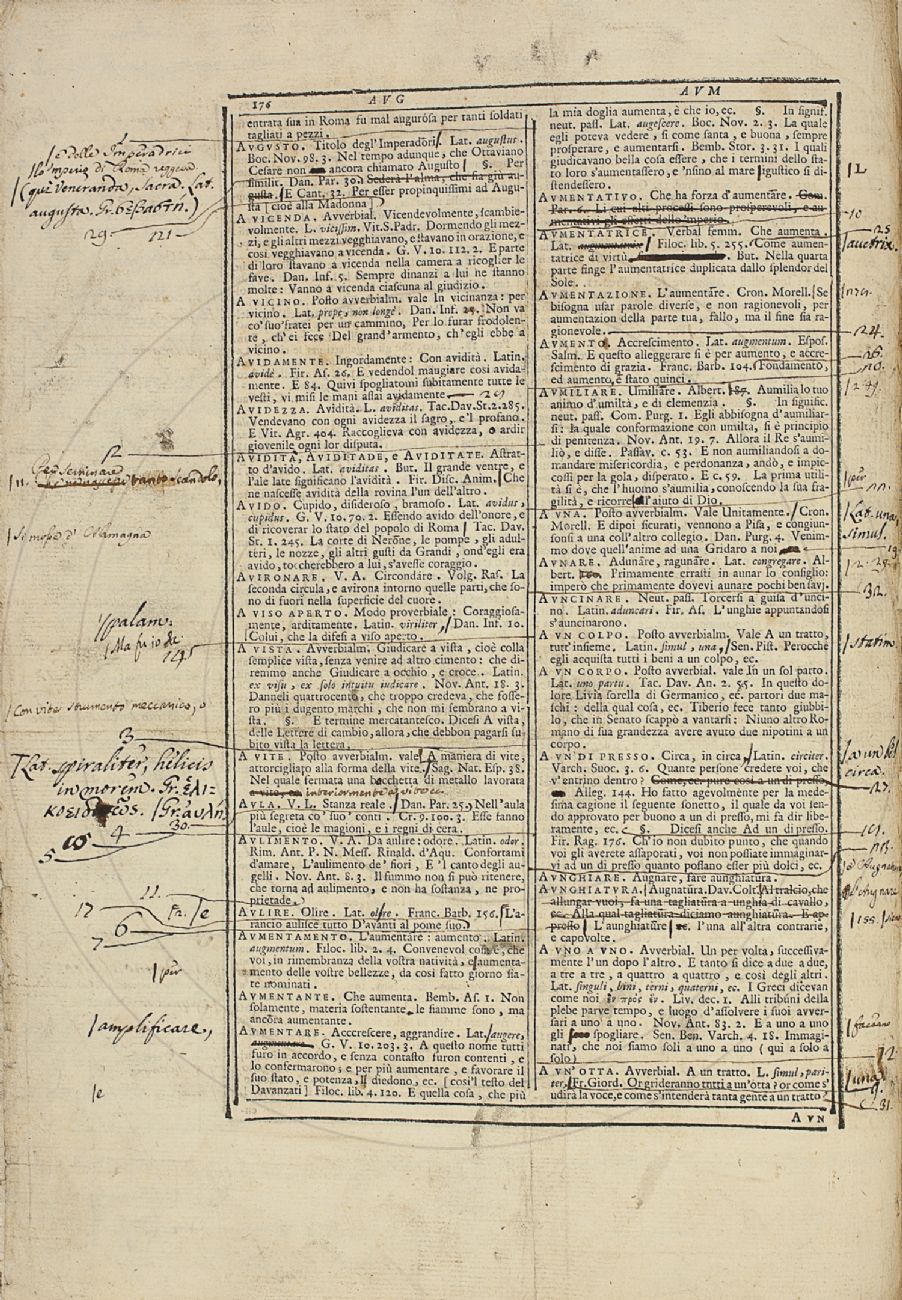 176
AVG
AVM
entrata sua in Roma fu mal augurosa per tanti soldati
tagliati a pezzi.
AVGVSTO. Titolo degl'Imperadori. Lat. augustus.
Boc. Nov. 98. 3. Nel tempo adunque, che Ottaviano
Cesare non ancora chiamato Augusto §. Per
similit. Dan. Par. 30. Sederà l'alma, che fia giù au-
gusta. E Cant. 32. Per esser propinquissimi ad Augu-
sta [cioè alla Madonna]
A VICENDA. Avverbial. Vicendevolmente, scambie-
volmente. L. vicissim. Vit.S.Padr. Dormendo gli mez-
zi, e gli altri mezzi vegghiavano, e stavano in orazione, e
così vegghiavano a vicenda. G. V. 10. 112. 2. E parte
di loro stavano a vicenda nella camera a ricoglier le
fave. Dan. Inf. 5. Sempre dinanzi a lui ne stanno
molte: Vanno a vicenda ciascuna al giudizio.
A VICINO. Posto avverbialm. vale In vicinanza: per
vicino. Lat. propè, non longè. Dan. Inf. 25. Non va
co' suo' fratei per un cammino, Per lo furar frodolen-
te, ch'ei fece Del grand'armento, ch'egli ebbe a
vicino.
AVIDAMENTE. Ingordamente: Con avidità. Latin.
avidè. Fir. As. 26. E vedendol mangiare così avida-
mente. E 84. Quivi spogliatomi subitamente tutte le
vesti, vi misi le mani assai avidamente
AVIDEZZA. Avidità. L. aviditas. Tac.Dav.St.2.285.
Vendevano con ogni avidezza il sagro, e'l profano.
E Vit. Agr. 404. Raccoglieva con avidezza, o ardir
giovenile ogni lor disputa.
AVIDITÀ, AVIDITADE, e AVIDITATE. Astrat-
to d'avido. Lat. aviditas. But. Il grande ventre, e
l'ale late significano l'avidità. Fir. Disc. Anim. Che
ne nascesse avidità della rovina l'un dell'altro.
AVIDO. Cupido, disideroso, bramoso. Lat. avidus,
cupidus. G. V. 10. 70. 2. Essendo avido dell'onore, e
di ricoverar lo stato del popolo di Roma Tac. Dav.
St. 1. 245. La corte di Nerone, le pompe, gli adul-
teri, le nozze, gli altri gusti da Grandi, ond'egli era
avido, toccherebbero a lui, s'avesse coraggio.
AVIRONARE. V. A. Circondare. Volg. Ras. La
seconda circula, e avirona intorno quelle parti, che so-
no di fuori nella superficie del cuore.
A VISO APERTO. Modo proverbiale: Coraggiosa-
mente, arditamente. Latin. viriliter, Dan. Inf. 10.
Colui, che la difesi a viso aperto.
A VISTA. Avverbialm. Giudicare a vista, cioè colla
semplice vista, senza venire ad altro cimento: che di-
remmo anche Giudicare a occhio, e croce. Latin.
ex visu, ex solo intuitu iudicare. Nov. Ant. 18. 3.
Danneli quattrocento, che troppo credeva, che fosse-
ro più i dugento marchi, che non mi sembrano a vi-
sta. §. E termine mercantesco. Dicesi A vista,
delle Lettere di cambio, allora, che debbon pagarsi su-
bito vista la lettera.
A VITE. Posto avverbialm. vale A maniera di vite,
attorcigliato alla forma della vite. Sag. Nat. Esp. 38.
Nel quale fermata una bocchetta di metallo lavorata
a vite, interiormente a vite ec.
AVLA. V. L. Stanza reale. Dan. Par. 25. Nell'aula
più segreta co' suo' conti. Cr. 9. 100. 3. Esse fanno
l'aule, cioè le magioni, e i regni di cera.
AVLIMENTO. V. A. Da aulire: odore. Latin. odor.
Rim. Ant. P. N. Mess. Rinald. d'Aqu. Confortami
d'amare, L'aulimento de' fiori, E'l canto degli au-
gelli. Nov. Ant. 8. 3. Il fummo non si può ritenere,
che torna ad aulimento, e non ha sostanza, ne pro-
prietade.
AVLIRE. Olire. Lat. olere. Franc. Barb. 156. L'a-
rancio aulisce tutto D'avanti al pome suo.
AVMENTAMENTO. L'aumentare: aumento. Latin.
augmentum. Filoc. lib. 2. 4. Convenevol cosa è, che
voi, in rimembranza della vostra natività, e aumenta-
mento delle vostre bellezze, da così fatto giorno sia-
te nominati.
AVMENTANTE. Che aumenta. Bemb. As. 1. Non
solamente, materia sostentante, le fiamme sono, ma
ancora aumentante.
AVMENTARE. Acccrescere, aggrandire. Lat. augere,
G. V. 10. 203. 3. A questo nome tutti
furo in accordo, e senza contasto furon contenti, e
lo confermarono; e per più aumentare, e favorare il
suo stato, e potenza, li diedono, ec. [così'l testo del
Davanzati] Filoc. lib. 4. 120. E quella cosa, che più
la mia doglia aumenta, è che io, ec. §. In signif.
neut. pass. Lat. augescere. Boc. Nov. 2. 3. La quale
egli poteva vedere, sì come santa, e buona, sempre
prosperare, e aumentarsi. Bemb. Stor. 3. 31. I quali
giudicavano bella cosa essere, che i termini dello sta-
to loro s'aumentassero, e 'nsino al mare ligustico si di-
stendessero.
AVMENTATIVO. Che ha forza d'aumentare. Com.
Par. 6. Li cui alti processi sono prosperevoli, e au-
mentativi gli effetti dello 'mperio.
AVMENTATRICE. Verbal femm. Che aumenta.
Lat. augmentatrix Filoc. lib. 5. 255. Come aumen-
tatrice di virtù. But. Nella quarta
parte finge l'aumentatrice duplicata dallo splendor del
Sole.
AVMENTAZIONE. L'aumentare. Cron. Morell. Se
bisogna usar parole diverse, e non ragionevoli, per
aumentazion della parte tua, fallo, ma il fine sia ra-
gionevole.
AVMENTO. Accrescimento. Lat. augmentum. Espos.
Salm. E questo alleggerare si è per aumento, e accre-
scimento di grazia. Franc. Barb. 104. Fondamento,
ed aumento, è stato quinci.
AVMILIARE. Umiliare. Albert. 187. Aumilia lo tuo
animo d'umiltà, e di clemenzia. §. In signific.
neut. pass. Com. Purg. 1. Egli abbisogna d'aumiliar-
si: la quale conformazione con umiltà, si è principio
di penitenza. Nov. Ant. 19. 7. Allora il Re s'aumi-
liò, e disse. Passav. c. 53. E non aumiliandosi a do-
mandare misericordia, e perdonanza, andò, e impic-
cossi per la gola, disperato. E c. 59. La prima utili-
tà si è, che l'huomo s'aumilia, conoscendo la sua fra-
gilità, e ricorre all'aiuto di Dio.
A VNA. Posto avverbialm. Vale Unitamente. Cron.
Morell. E dipoi sicurati, vennono a Pisa, e congiun-
sonsi a una coll'altro collegio. Dan. Purg. 4. Venim-
mo dove quell'anime ad una Gridaro a noi
AVNARE. Adunare, ragunare. Lat. congregare. Al-
bert. Primamente errasti in aunar lo consiglio:
imperò che primamente dovevi aunare pochi ben savj.
AVNCINARE. Neut. pass. Torcersi a guisa d'unci-
no. Latin. aduncari. Fir. As. L'unghie appuntandosi
s'auncinarono.
A VN COLPO. Posto avverbialm. Vale A un tratto,
tutt'insieme. Latin. simul, una, Sen. Pist. Perocchè
egli acquista tutti i beni a un colpo, ec.
A VN CORPO. Posto avverbial. vale In un sol parto.
Lat. uno partu. Tac. Dav. An. 2. 55. In questo do-
lore Livia sorella di Germanico, ec. partorì due ma-
schi: della qual cosa, ec. Tiberio fece tanto giubbi-
lo, che in Senato scappò a vantarsi: Niuno altro Ro-
mano di sua grandezza avere avuto due nipotini a un
corpo.
A VN'DI PRESSO. Circa, in circa, Latin. circiter
Varch. Suoc. 3. 6. Quante persone credete voi, che
v'entrino dentro? Come, ec. pure così a un di presso.
Alleg. 144. Ho fatto agevolmente per la mede-
sima cagione il seguente sonetto, il quale da voi sen-
do approvato per buono a un di presso, mi fa dir libe-
ramente, ec. §. Dicesi anche Ad un di presso.
Fir. Rag. 176. Ch'io non dubito punto, che quando
voi gli averete assaporati, voi non possiate immaginar-
vi ad un di presso quanto possano esser più dolci, ec.
AVNGHIARE. Augnare, fare aunghiatura.
AVNGHIATVRA. Augnatura. Dav. Colt. Al tralcio, che
allungar vuoi, fa una tagliatura a unghia di cavallo,
ec. Alla qual tagliatura diciamo aunghiatura. E ap-
presso L'aunghiature ec. l'una all'altra contrarie,
e capovolte.
A VNO A VNO. Avverbial. Un per volta, successiva-
mente l'un dopo l'altro. E tanto si dice a due a due,
a tre a tre, a quattro a quattro, e così degli altri.
Lat. singuli, bini, terni, quaterni, ec. I Greci dicevan
come noi ἓν πρὸς ἕν. Liv. dec. 1. Alli tribuni della
plebe parve tempo, e luogo d'assolvere i suoi avver-
sari a uno a uno. Nov. Ant. 83. 2. E a uno a uno
gli spogliare. Sen. Ben. Varch. 4. 18. Immagi-
nati, che noi siamo soli a uno a uno (qui a solo a
solo)
A VN'OTTA. Avverbial. A un tratto. L. simul, pari-
ter, Fr. Giord. Or grideranno tutti a un'otta? or come s'
udirà la voce, e come s'intenderà tanta gente a un tratto?
AVN
e delle Imperadrici
augusta. Gr. σεβαστή.)
29. 121
2
Per seminare
11.
scandolo,
palam.
Ma fu io
145
Con vite strumento meccanico, o
3
Lat. spiraliter, helicis
in morem. Gr. ἑλι-
κοειδῶς. Gr. αὐλή.
30.
4
5
11.
17
6
7
per
amplificare,
le
L
10
25
auctrix.
124.
26.
110.
per
Lat. una,
simul.
19
32.
statim
circa.
27.
101.
113.
155.
facciano
12
Luna
9.
31.